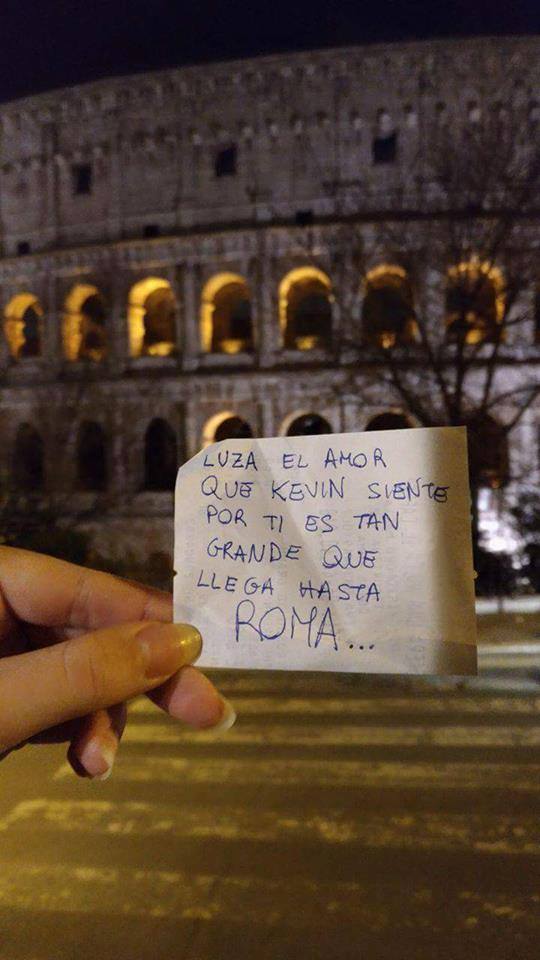 LUZA EL AMOR
QUE KEVIN SIENTE
POR TI ES TAN
GRANDE QUE
LLEGA HASTA
ROMA...